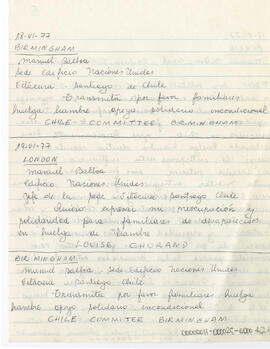 18-VI-77
BIRMINGHAM
Manuel Balboa
Sede Edificio Naciones Unidas
Vitacura - Santiago de Chile
Transmita por favor familiares
huelga hambre apoyo solidario incondicional
CHILE COMMITTEE BIRMINGHAM
19-VI-77
LONDON
Manuel Balboa
Edificio Naciones Unidas
Jefe de la sede Vitacura Santiago Chile
Quiero expresar mi preocupación y
solidaridad para familiares de desaparecidos
en huelga de hambre
LOUISE
BIRMINGHAM
Manuel Balboa sede edificio Naciones Unidas
Vitacura Santiago Chile
Transmita por favor familiares huelga
hambre apoyo solidario incondicional
CHILE COMMITEE BIRMINGHAM